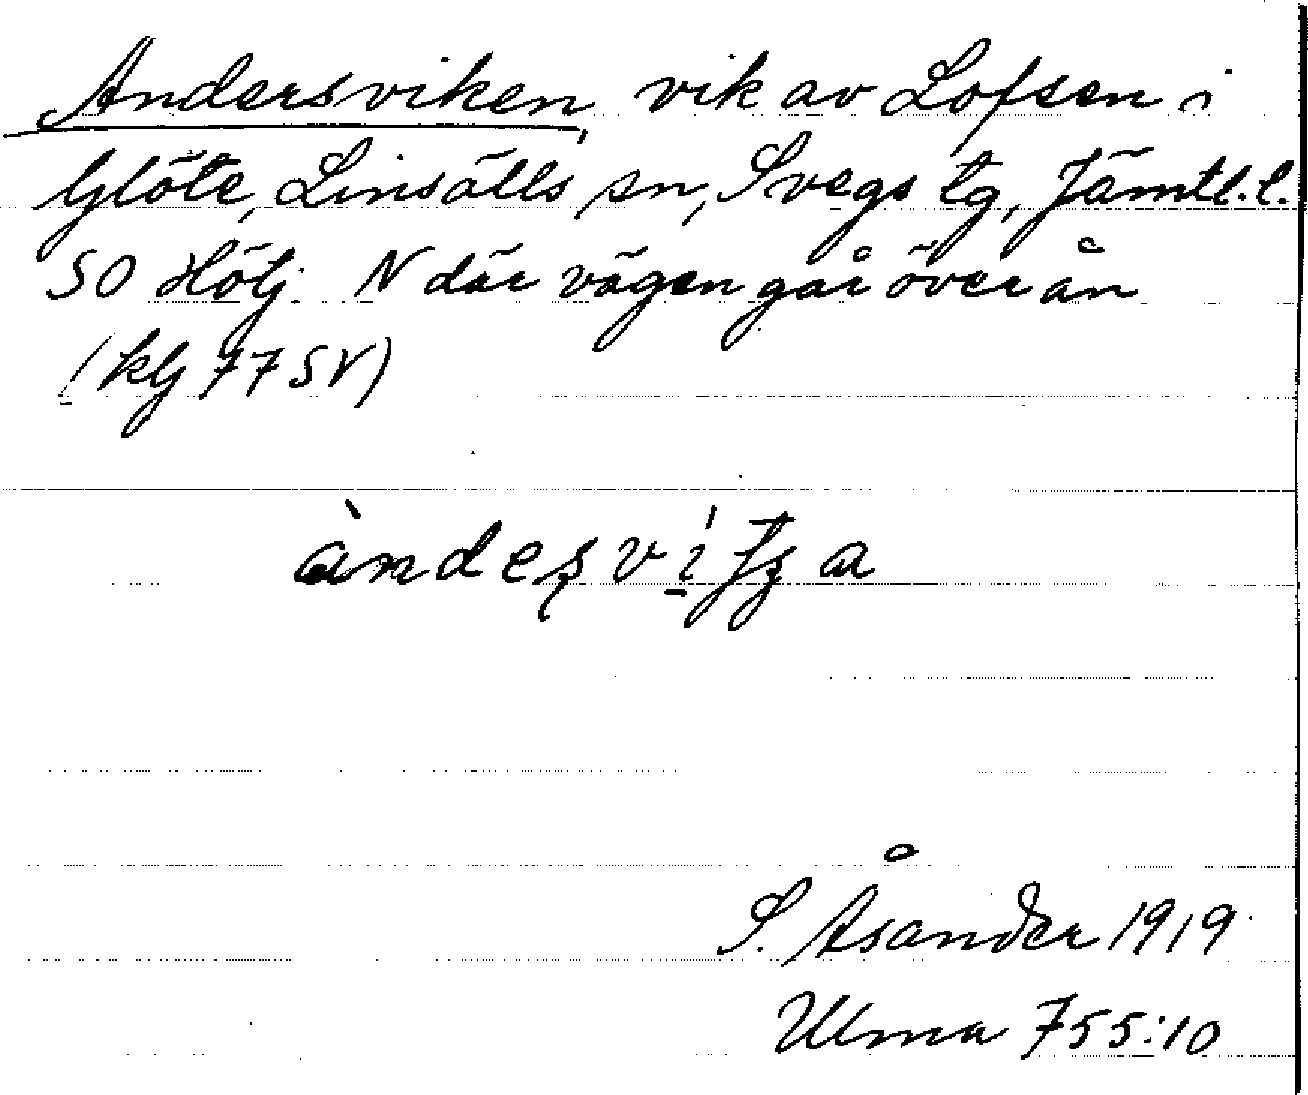 Andersviken, vik av Lofsen i
Glöte, Linsälls sn, Svegs tg, Jämtl. l.
SO Hölj. N där vägen går över ån
(kbj 77 SV)
S. Åsander 1919
Ulma 755:10